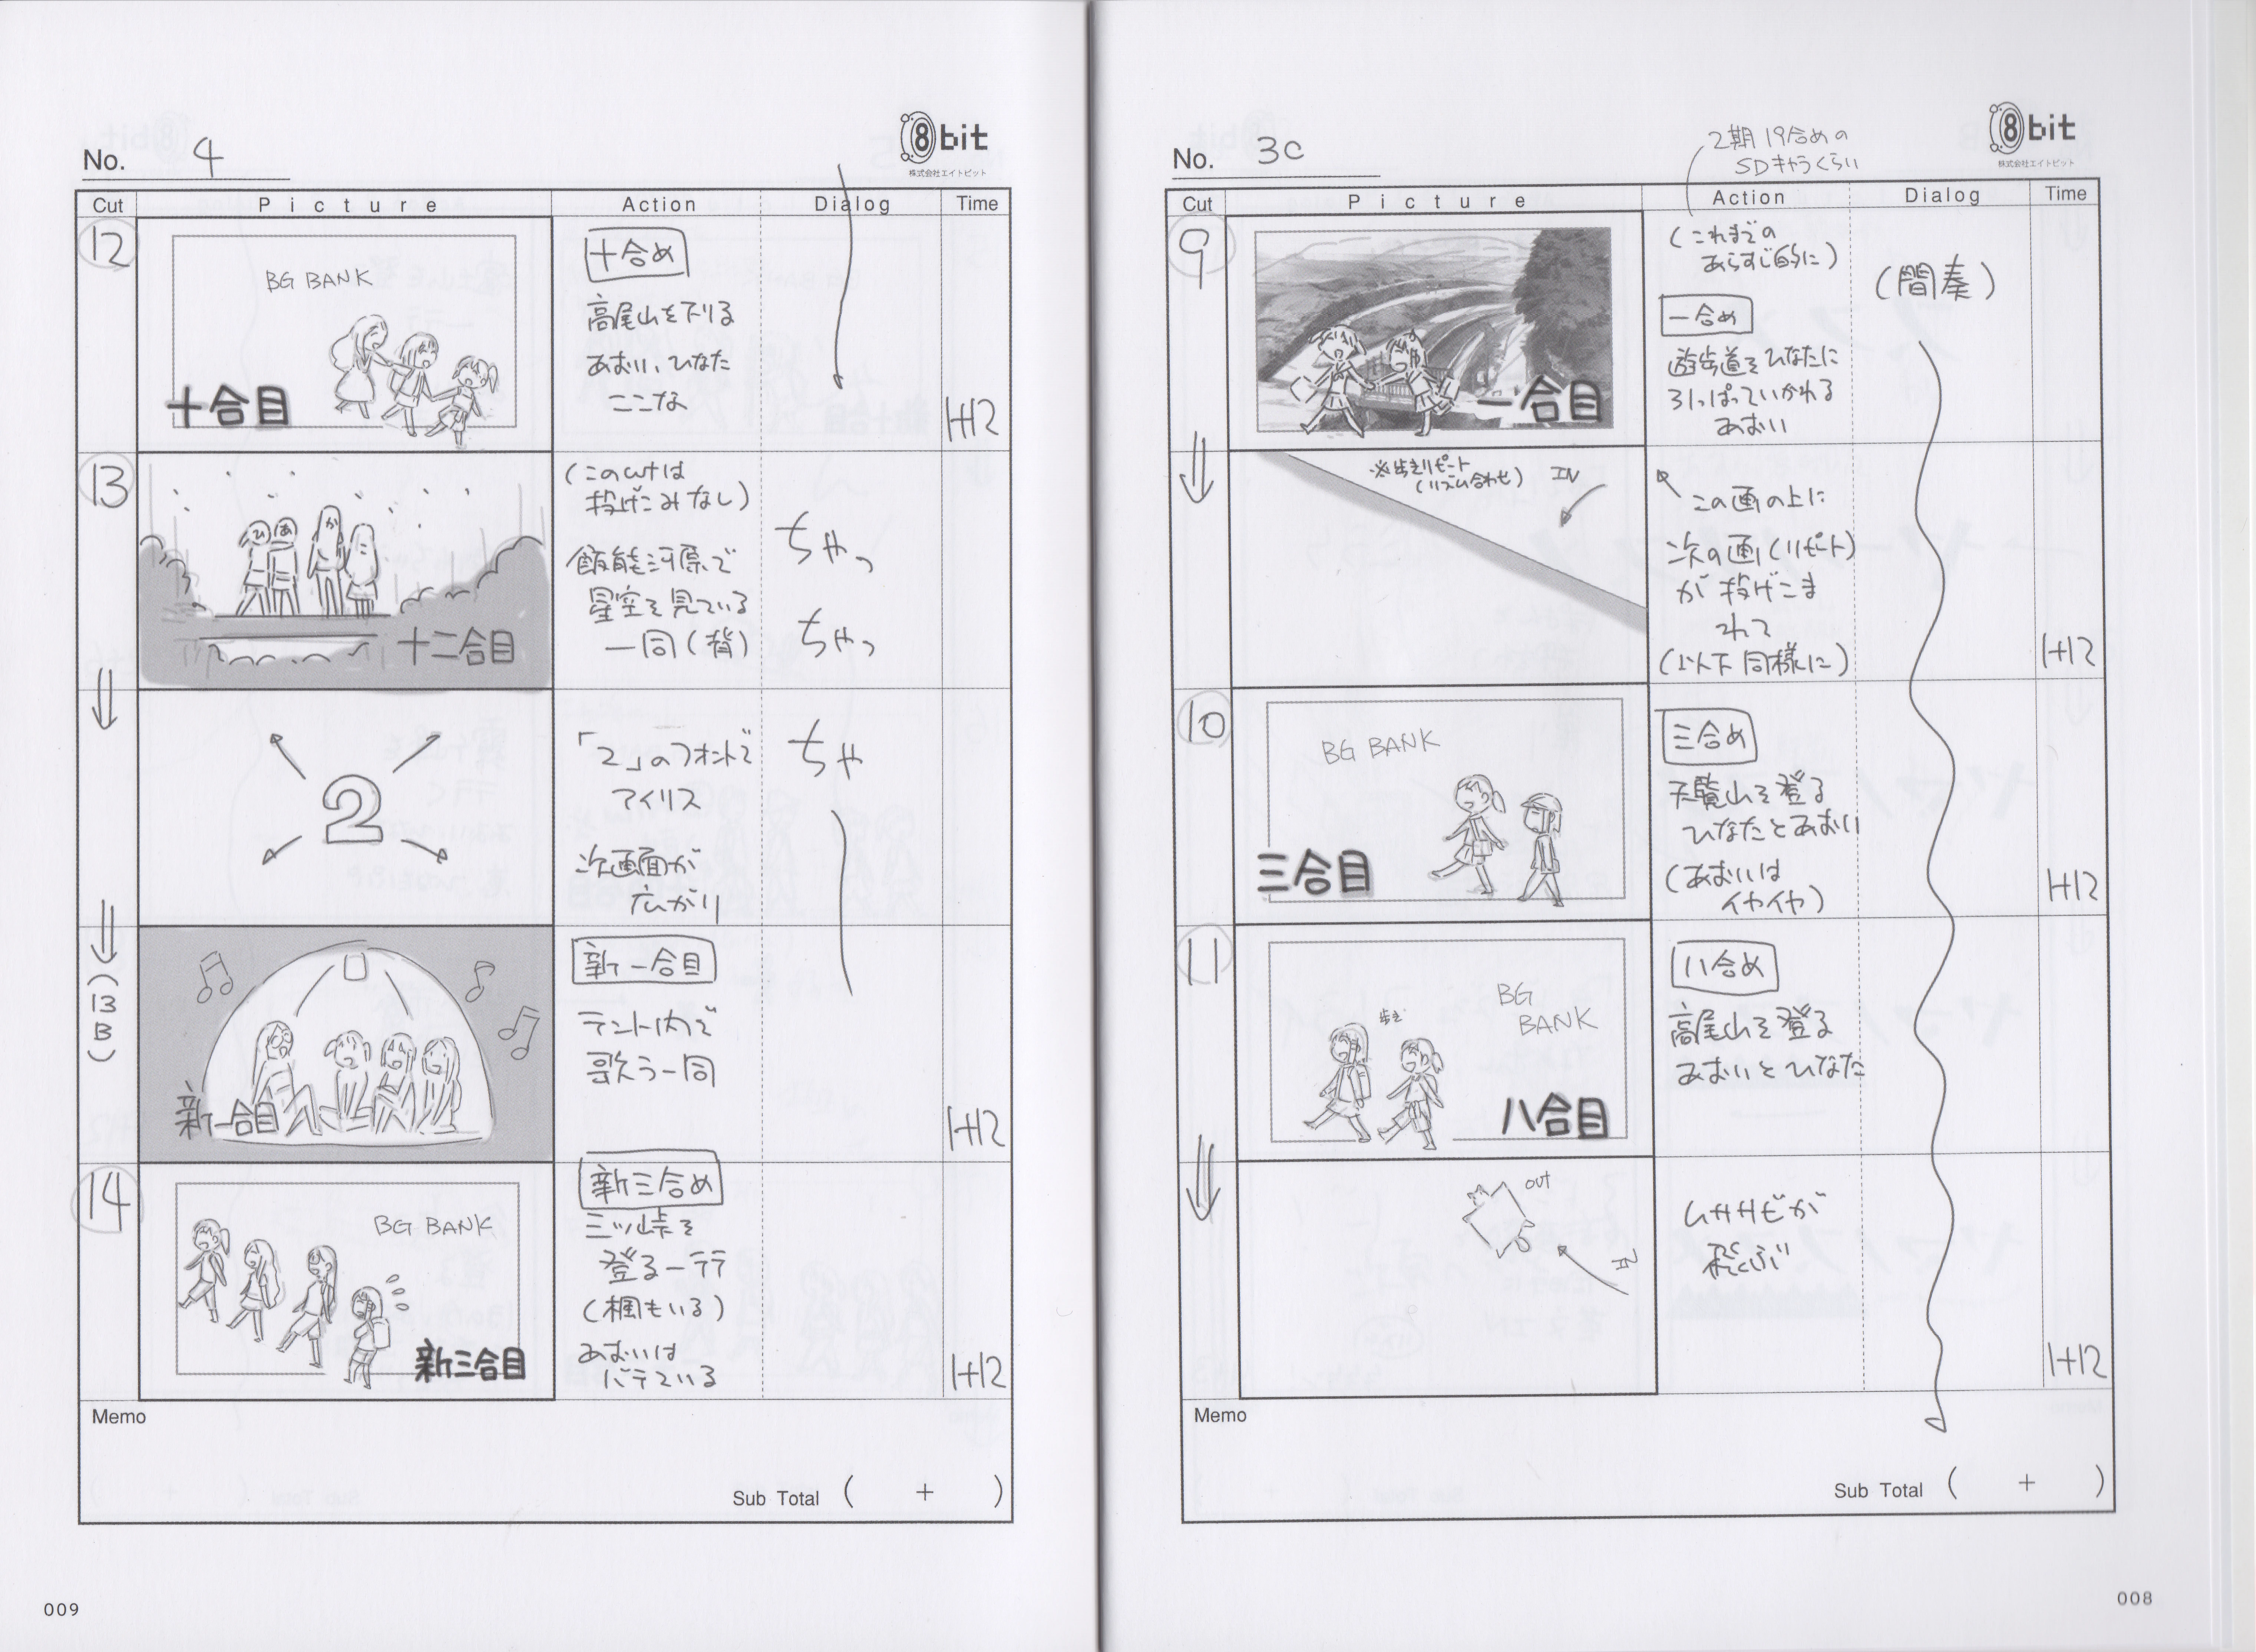 No. 3C
8bit
株式会社エイトビット
2期19合めの
SDキャラくらい
Cut
Picture
Action
Dialog
Time
9
一合目
(これまでの
あらすじ的に)
一合め
遊歩道をひなたに
引っぱっていかれる
あおい
(間奏)
※歩きリピート
(リズム合わせ)
IN
この画の上に
次の画(リピート)
が投げこま
れて
(以下同様に)
1+12
10
BG BANK
三合目
三合め
天覧山を登る
ひなたとあおい
(あおいは
イヤイヤ)
1+12
11
歩き
BG
BANK
八合目
八合め
高尾山を登る
あおいとひなた
OUT
IN
ムササビが
飛ぶ
1+12
Memo
Sub Total ( + )
008
No. 4
8bit
株式会社エイトビット
Cut
Picture
Action
Dialog
Time
12
BG BANK
十合目
十合め
高尾山を下りる
あおい、ひなた
ここな
1+12
13
ひ
あ
か
こ
十二合目
(このcutは
投げこみなし)
飯能河原で
星空を見ている
一同(背)
ちゃっ
ちゃっ
2
「2」のフォントで
アイリス
次画面が
広がり
ちゃ
(13
B)
新一合目
新一合目
テント内で
歌う一同
1+12
14
BG BANK
新三合目
新三合め
三ッ峠を
登る一行
(楓もいる)
あおいは
バテている
1+12
Memo
Sub Total ( + )
009